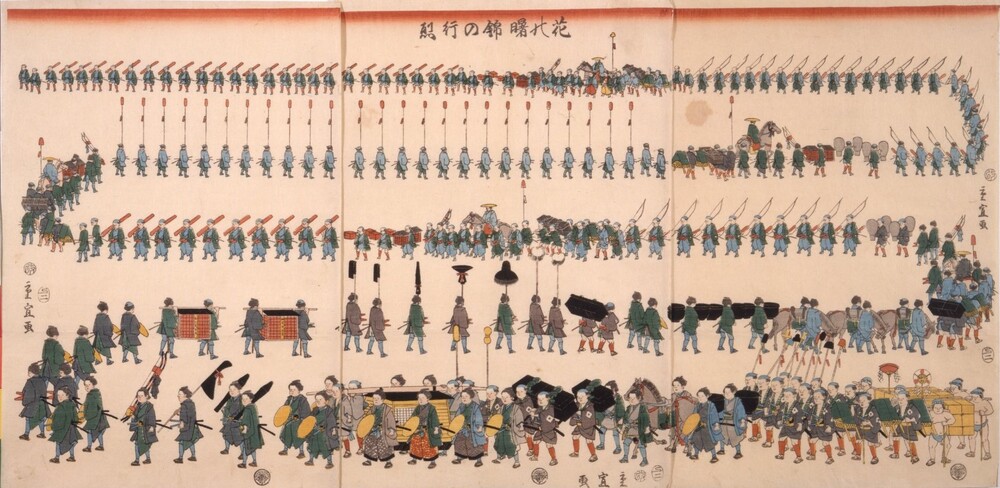 花の曙錦の行烈
重宣画
重宣画
重宣画